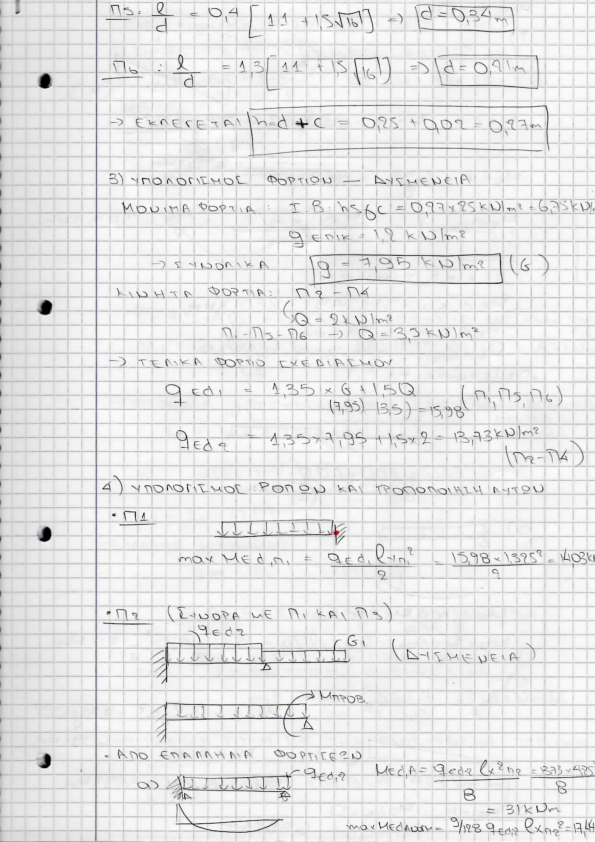 Π5: l/d = 0,4 [11 + 1,5√16] => d = 0,34m
Π6 : l/d = 1,3[11 + 1,5√16] => d = 0,21m
-> ΕΚΛΕΓΕΤΑΙ h=d+c = 0,25 + 0,02 = 0,27m
3) ΥΠΟΛΟΓΙΣΜΟΣ ΦΟΡΤΙΩΝ — ΔΥΣΜΕΝΕΙΑ
ΜΟΝΙΜΑ ΦΟΡΤΙΑ: Ι.Β: hδβc = 0,27×25kN/m² = 6,75kN/
g ΕΠΙΚ = 1,2 kN/m²
-> ΣΥΝΟΛΙΚΑ g = 7,95 kN/m² (G)
ΚΙΝΗΤΑ ΦΟΡΤΙΑ: Π2-Π4
Q = 2kN/m²
Π1-Π5-Π6 -> Q = 3,5kN/m²
-> ΤΕΛΙΚΑ ΦΟΡΤΙΟ ΣΧΕΔΙΑΣΜΟΥ
qEd1 = 1,35 × G + 1,5Q (Π1, Π5, Π6)
(7,95) (3,5) = 15,98
qEd2 = 1,35×7,95 + 1,5×2 = 13,73kN/m²
(Π2-Π4)
4) ΥΠΟΛΟΓΙΣΜΟΣ ΡΟΠΩΝ ΚΑΙ ΤΡΟΠΟΠΟΙΗΣΗ ΑΥΤΩΝ
• Π1
max MEd,Π1 = qEd1 lyΠ1²/2 = 15,98×1,325²/2 = 14,03k
• Π2 (ΣΥΝΟΡΑ ΜΕ Π1 ΚΑΙ Π3)
qEd2
G1
(ΔΥΣΜΕΝΕΙΑ)
ΜΠΡΟΒ.
· ΑΠΟ ΕΠΑΛΛΗΛΙΑ ΦΟΡΤΙΣΕΩΝ
α) qEd,2 MEd,A = qEd2 lx²Π2/8
A B
= 31kNm
= 9/128 qEd,2 lxΠ2² = 17,44